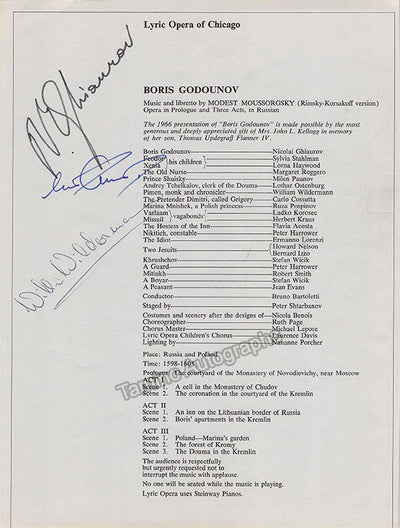 Lyric Opera of Chicago
BORIS GODOUNOV
Music and libretto by MODEST MOUSSORGSKY (Rimsky-Korsakoff version)
Opera in Prologue and Three Acts, in Russian
The 1966 presentation of "Boris Godounov" is made possible by the most
generous and deeply appreciated gift of Mrs. John L. Kellogg in memory
of her son, Thomas Updegraff Flanner IV.
Boris Godounov Nicolai Ghiaurov
Feodor } his children { Sylvia Stahlman
Xenia Lorna Haywood
The Old Nurse Margaret Roggero
Prince Shuisky Milen Paunov
Andrey Tchelkalov, clerk of the Douma Lothar Ostenburg
Pimen, monk and chronicler William Wildermann
The Pretender Dimitri, called Grigory Carlo Cossutta
Marina Mnishek, a Polish princess Ruza Pospinov
Varlaam } vagabonds { Ladko Korosec
Missail Herbert Kraus
The Hostess of the Inn Flavia Acosta
Nikitich, constable Peter Harrower
The Idiot Ermanno Lorenzi
Two Jesuits { Howard Nelson
Bernard Izzo
Khrushchov Stefan Wicik
A Guard Peter Harrower
Mitiukh Robert Smith
A Boyar Stefan Wicik
A Peasant Jean Evans
Conductor Bruno Bartoletti
Staged by Peter Shtarbanov
Costumes and scenery after the designs of Nicola Benois
Choreographer Ruth Page
Chorus Master Michael Lepore
Lyric Opera Children's Chorus Laurence Davis
Lighting by Nananne Porcher
Place: Russia and Poland
Time: 1598-1605
Prologue: The courtyard of the Monastery of Novodievichy, near Moscow
ACT I
Scene 1. A cell in the Monastery of Chudov
Scene 2. The coronation in the courtyard of the Kremlin
ACT II
Scene 1. An inn on the Lithuanian border of Russia
Scene 2. Boris' apartments in the Kremlin
ACT III
Scene 1. Poland—Marina's garden
Scene 2. The forest of Kromy
Scene 3. The Douma in the Kremlin
The audience is respectfully
but urgently requested not to
interrupt the music with applause.
No one will be seated while the music is playing.
Lyric Opera uses Steinway Pianos.
N Ghiaurov
Tamino Autographs